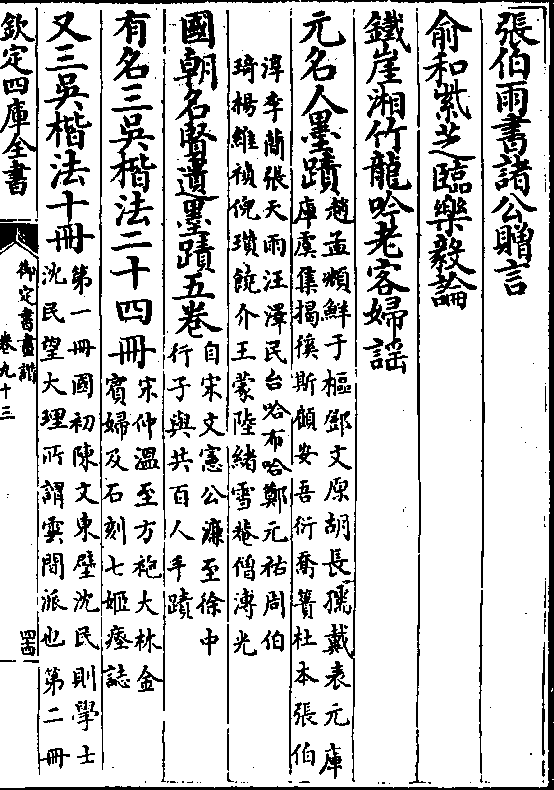 張伯雨書諸公贈言
俞和紫芝臨樂毅論
鐵崖湘竹龍吟老客婦謡
元名人墨蹟趙孟頫鮮于樞鄧文原胡長孺戴表元庫
庫虞集揭傒斯顧安吾衍喬簣杜本張伯
淳李蕑張天雨汪澤民台哈布哈鄭元祐周伯
琦楊維禎倪瓚饒介王蒙陸緒雪菴僧溥光
國朝名賢遺墨蹟五卷自宋文憲公濂至徐中
行子與共百人手蹟
有名三吳楷法二十四冊宋仲温至方袍大林金
賓婦及石刻七姬瘞誌
又三吳楷法十冊第一冊國初陳文東璧沈民則學士
沈民望大理所謂雲間派也第二冊
欽定四庫全書
御定書畫譜
卷九十三